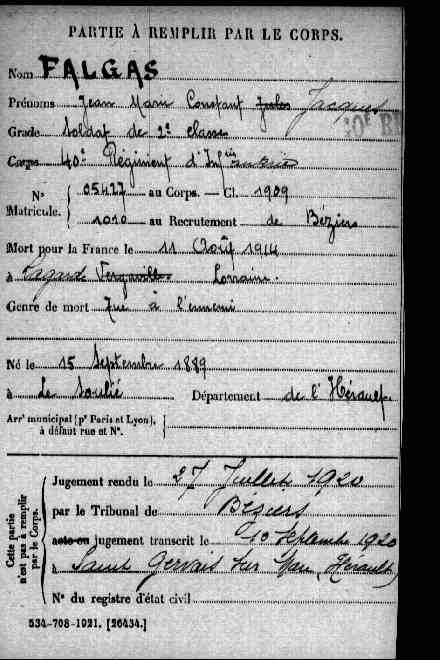 PARTIE À REMPLIR PAR LE CORPS.
Nom FALGAS
Prénoms Jean Marie Constant Jules Jacques
Grade Soldat de 2e classe
Corps 40e Régiment d'Infanterie
N° Matricule. 05427 au Corps. — Cl. 1909
1010 au Recrutement de Béziers
Mort pour la France le 11 Août 1914
à Lagarde Vergaville Lorraine.
Genre de mort Tué à l'ennemi
Né le 15 Septembre 1889
à Le Soulié Département de l'Hérault
Arrt municipal (pr Paris et Lyon),
à défaut rue et N°.
Cette partie n'est pas à remplir par le Corps.
Jugement rendu le 27 Juillet 1920
par le Tribunal de Béziers
acte ou jugement transcrit le 10 Septembre 1920
à Saint Gervais sur Mare (Hérault)
N° du registre d'état civil
534-708-1921. [26434.]